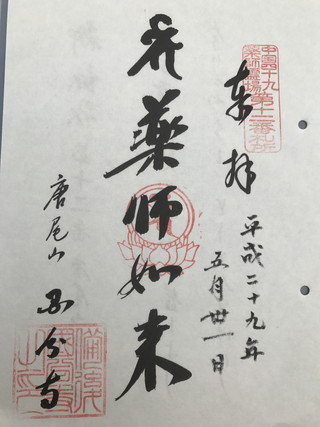 中国四十九
薬師霊場
第十二番札所
奉拝
平成二十九年
五月丗一日
薬師如来
唐尾山 国分寺